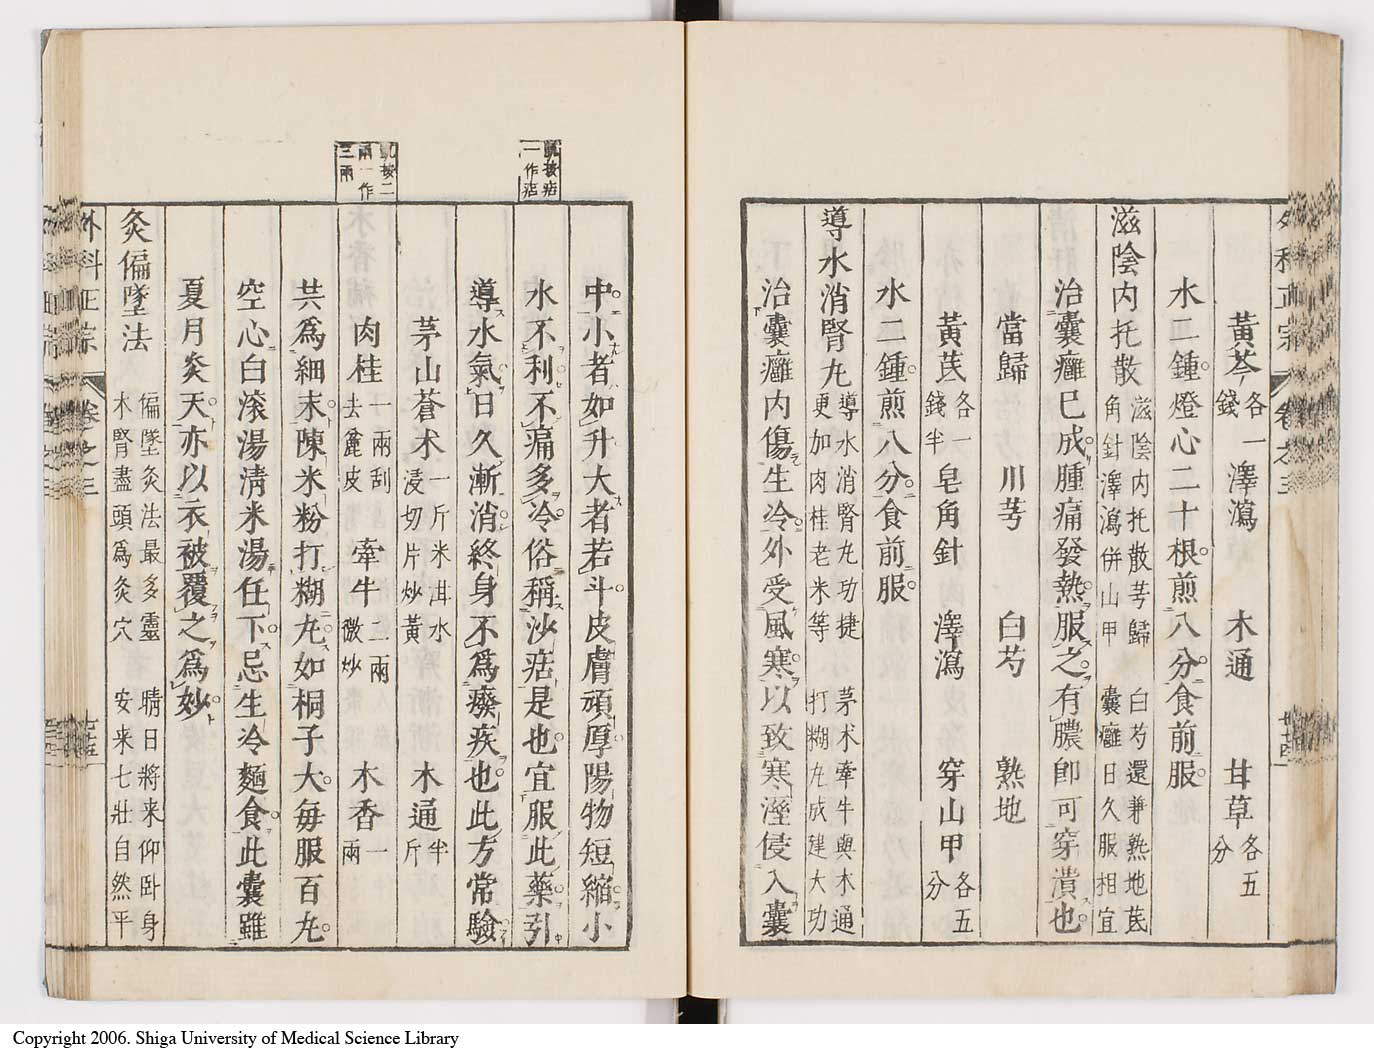 黃芩各一錢 澤瀉 木通 甘草各五分
水二鍾燈心二十根煎八分食前服
滋陰内托散滋陰内托散芎歸 白芍還兼熟地芪
角針澤瀉併山甲 囊癰日久服相宜
治囊癰已成腫痛發熱服之有膿即可穿潰也
當歸 川芎 白芍 熟地
黃芪各一錢半 皂角針 澤瀉 穿山甲各五分
水二鍾煎八分食前服
導水消腎丸導水消腎丸功捷 茅朮牽牛與木通
更加肉桂老米等 打糊丸成建大功
治囊癰内傷生冷外受風寒以致寒溼侵入囊
中小者如升大者若斗皮膚頑厚陽物短縮小
水不利不痛多冷俗稱沙㾶是也宜服此藥引
導水氣日久漸消終身不爲癈疾也此方常驗
茅山蒼朮一斤米泔水浸切片炒黃 木通半斤
肉桂一兩刮去麄皮 牽牛二兩微炒 木香一兩
共爲細末陳米粉打糊丸如桐子大毎服百丸
空心白滚湯淸米湯任下忌生冷麵食此囊雖
夏月炎天亦以衣被覆之爲妙
灸偏墜法偏墜灸法最多靈 晴日將来仰卧身
木腎盡頭爲灸穴 安来七壯自然平
外科正宗 卷之三 廿五